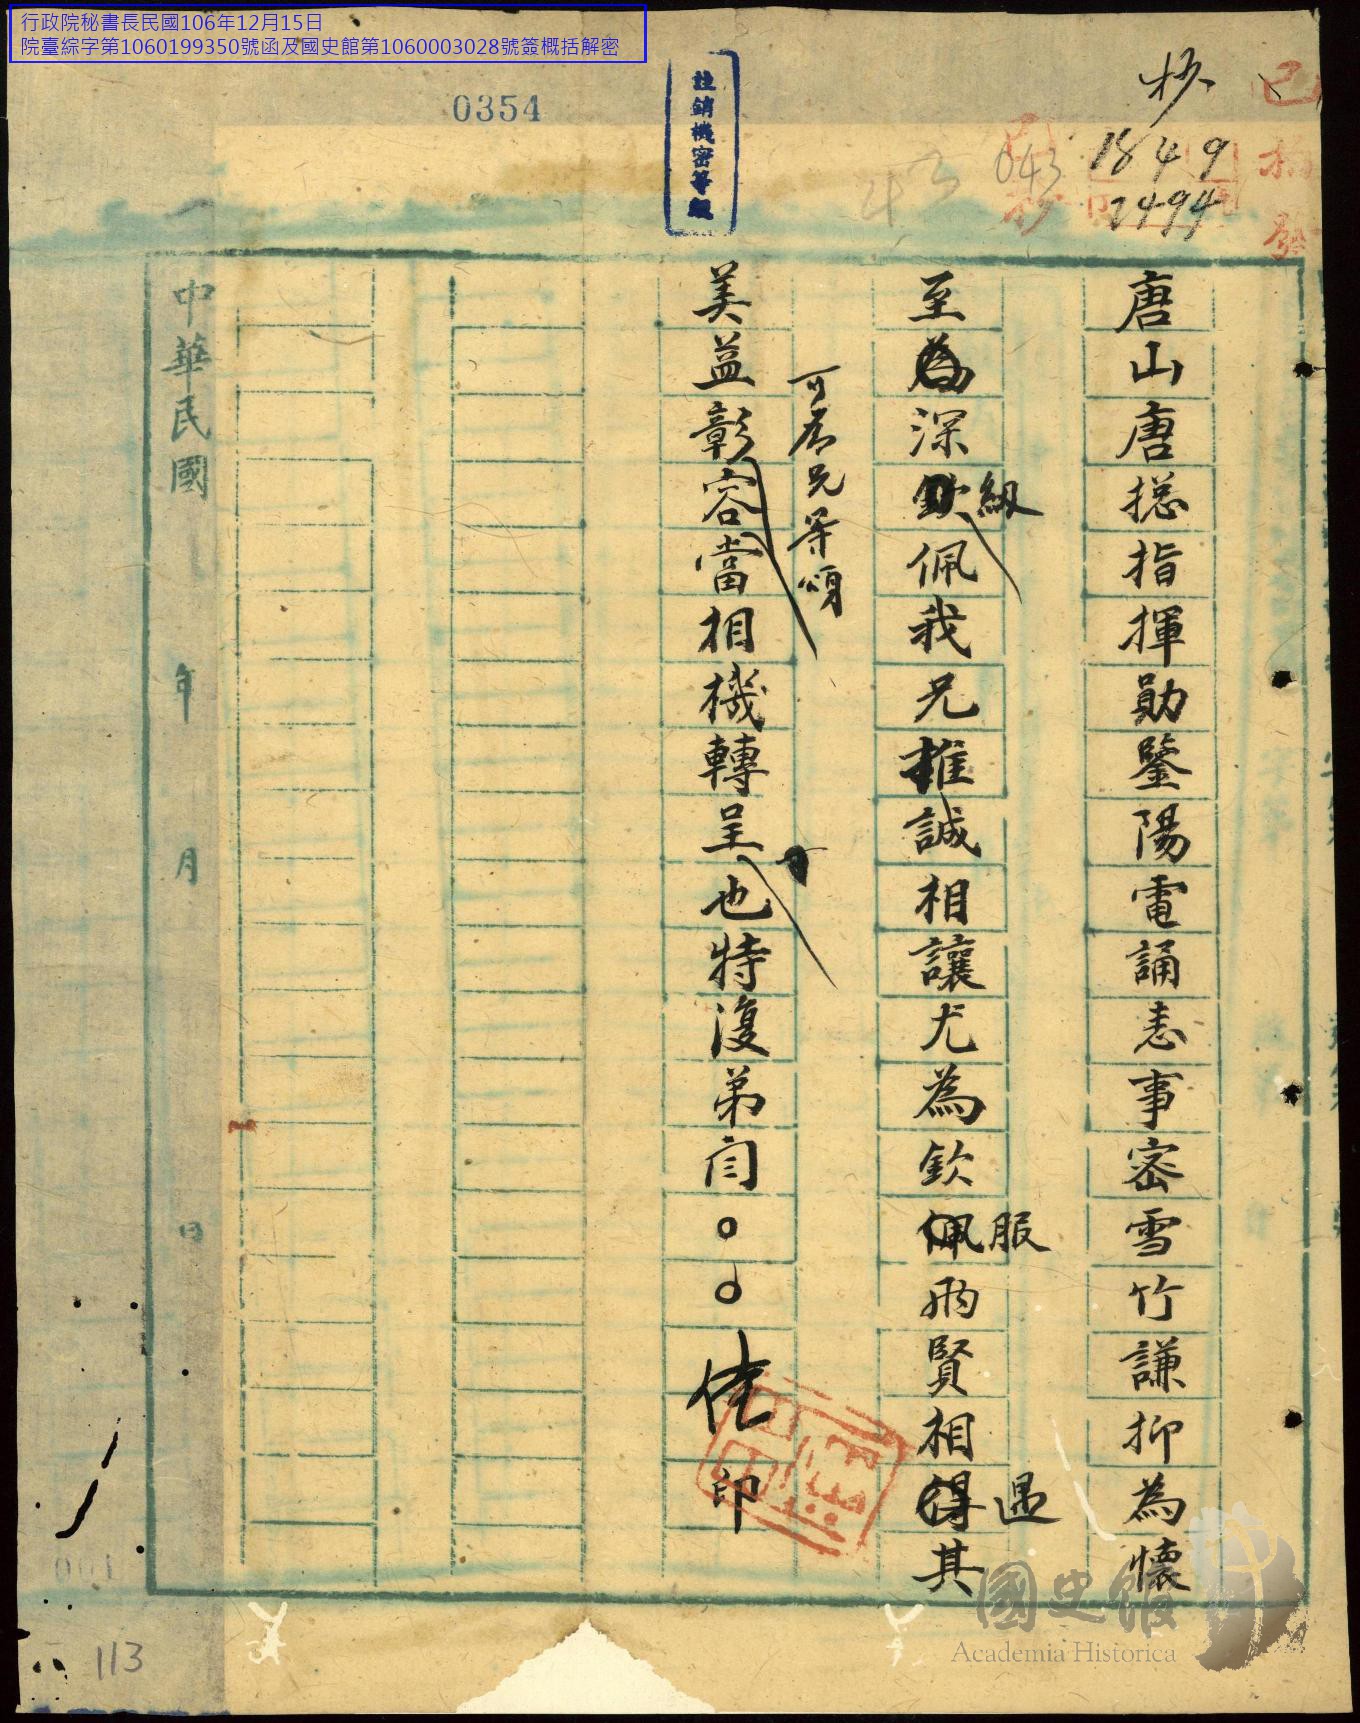 行政院秘書長民國106年12月15日
院臺綜字第1060199350號函及國史館第1060003028號簽概括解密
0354
註銷機密等級
抄
1849
2494
043
43
已抄
已拍發
唐山唐總指揮勛鑒陽電誦悉事密雪竹謙抑為懷
至為深欽佩我兄推誠相讓尤為欽佩兩賢相得其
紉
服
遇
可為兄等頌
美益彰容當相機轉呈也特復弟閻○○佳印
中華民國 年 月 日
001
113
國史館
Academia Historica